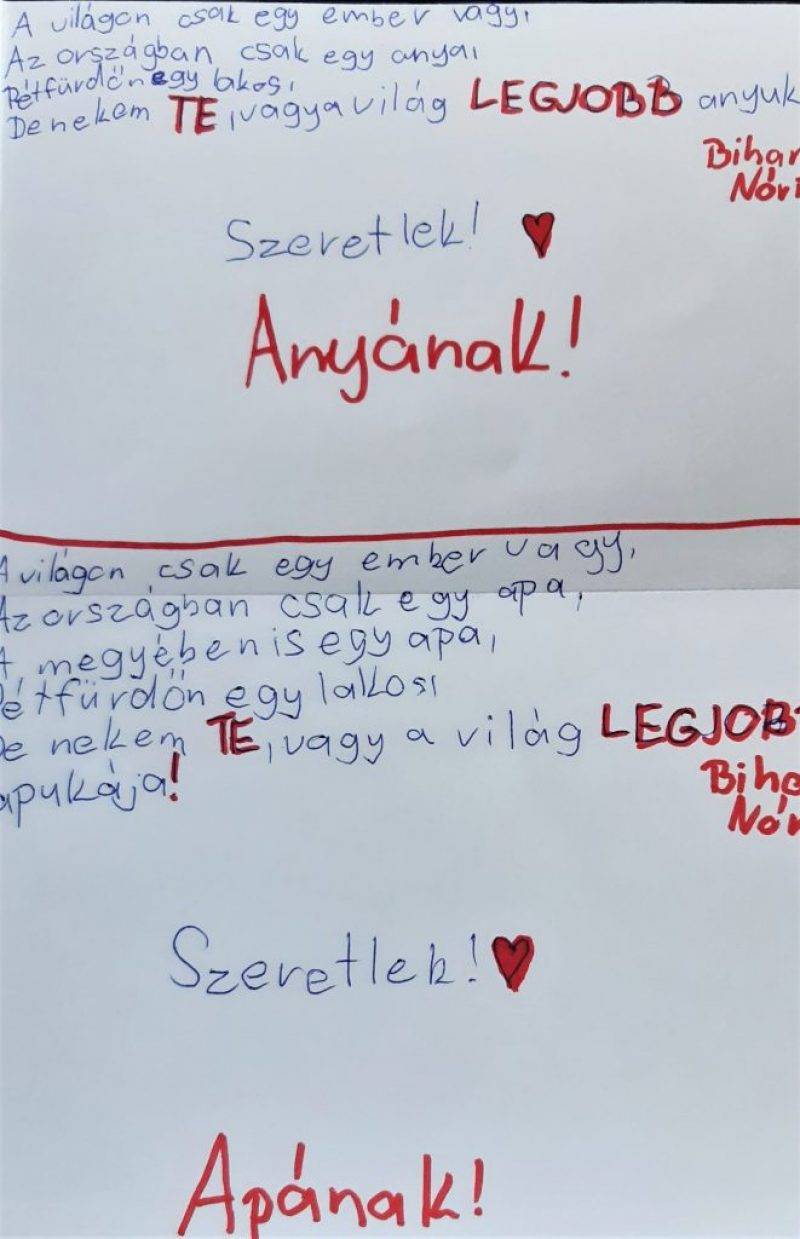 A világon csak egy ember vagy,
Az országban csak egy anya,
Pétfürdőn egy lakos,
De nekem TE, vagy a világ LEGJOBB anyuk
Bihar
Nóri
Szeretlek! ♥
Anyának!
A világon csak egy ember vagy,
Az országban csak egy apa,
A megyében is egy apa,
Pétfürdőn egy lakos,
De nekem TE, vagy a világ LEGJOBB
apukája!
Biha
Nór
Szeretlek! ♥
Apának!